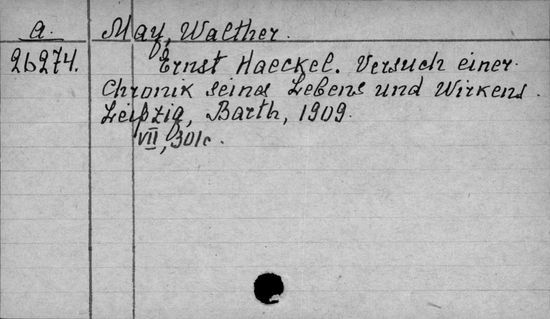 a. May, Walther.
26274. Ernst Haeckel. Versuch einer
Chronik seines Lebens und Wirkens.
Leipzig, Barth, 1909.
VII, 301c.